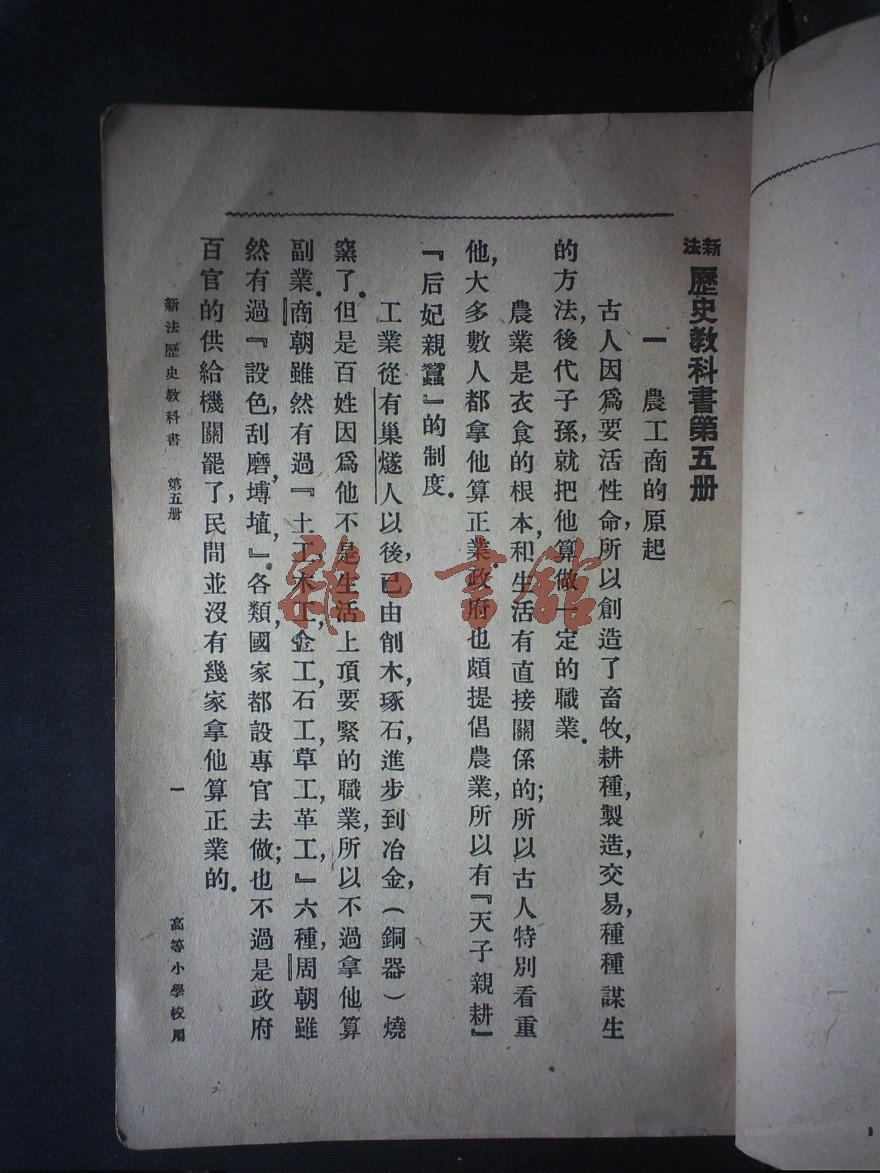 新法歷史教科書第五册
一　農工商的原起
古人因爲要活性命，所以創造了畜牧，耕種，製造，交易，種種謀生
的方法，後代子孫，就把他算做一定的職業．
農業是衣食的根本，和生活有直接關係的；所以古人特別看重
他，大多數人都拿他算正業．政府也頗提倡農業，所以有『天子親耕』
『后妃親蠶』的制度．
工業從有巢燧人以後，已由削木，琢石，進步到冶金，（銅器）燒
窯了．但是百姓因爲他不是生活上頂要緊的職業，所以不過拿他算
副業．商朝雖然有過『土工，木工，金工，石工，草工，革工，』六種，周朝雖
然有過『設色，刮磨，塼埴，』各類，國家都設專官去做；也不過是政府
百官的供給機關罷了，民間並沒有幾家拿他算正業的．
新法歷史教科書　第五册　一　高等小學校用
雜·書館